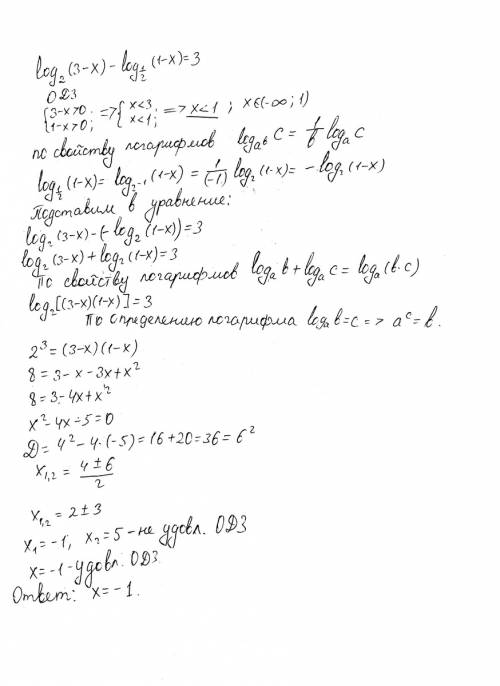 log₂(3-x) - log_{1/2}(1-x) = 3
ОДЗ
{3-x>0; 1-x>0; => {x<3; x<1; => x<1 ; x∈(-∞; 1)
по свойству логарифмов log_{a^b} C = 1/b log_a C
log_{1/2}(1-x) = log_{2^{-1}}(1-x) = 1/(-1) log₂(1-x) = -log₂(1-x)
Подставим в уравнение:
log₂(3-x) - (-log₂(1-x)) = 3
log₂(3-x) + log₂(1-x) = 3
По свойству логарифмов log_a b + log_a c = log_a(b·c)
log₂[(3-x)(1-x)] = 3
По определению логарифма log_a b = c => a^c = b.
2³ = (3-x)(1-x)
8 = 3 - x - 3x + x²
8 = 3 - 4x + x²
x² - 4x - 5 = 0
D = 4² - 4·(-5) = 16 + 20 = 36 = 6²
x₁,₂ = (4 ± 6)/2
x₁,₂ = 2 ± 3
x₁ = -1; x₂ = 5 - не удовл. ОДЗ
x = -1 - удовл. ОДЗ.
Ответ: x = -1.